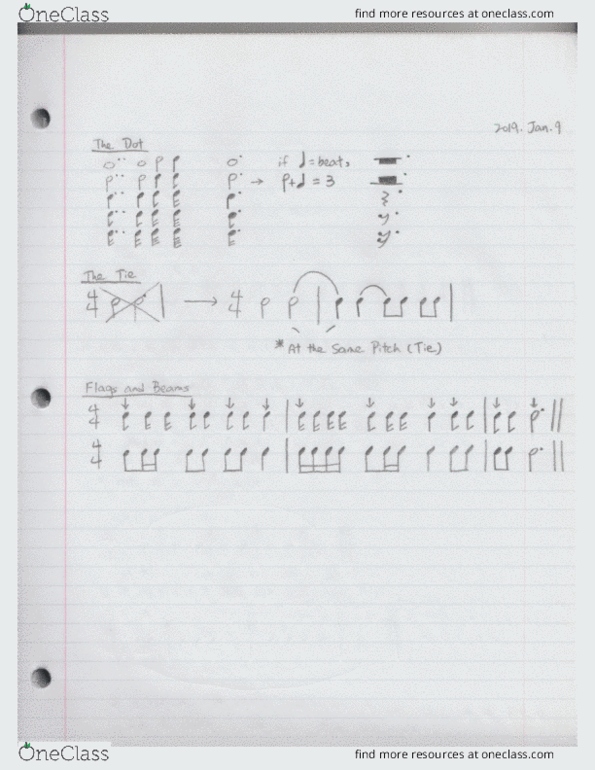 OneClass
find more resources at oneclass.com
2019. Jan. 9
The Dot
if ♩=beat,
𝅗𝅥+♩ = 3
The Tie
4/4 → 4/4
*At the Same Pitch (Tie)
Flags and Beams
4/4
4/4
OneClass
find more resources at oneclass.com